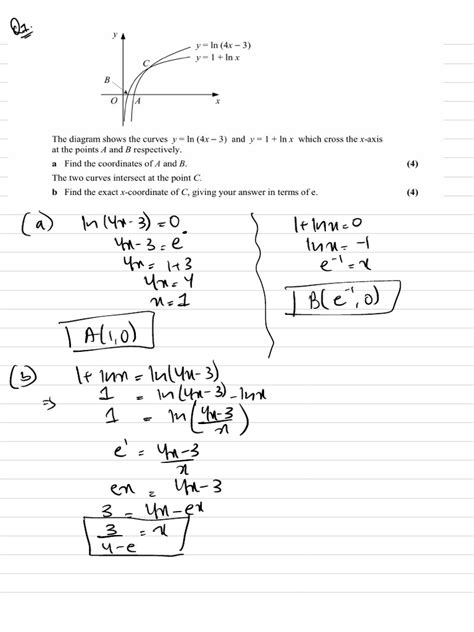 Q1.
y
y = ln (4x − 3)
y = 1 + ln x
C
B
O A x
The diagram shows the curves y = ln (4x − 3) and y = 1 + ln x which cross the x-axis
at the points A and B respectively.
a Find the coordinates of A and B. (4)
The two curves intersect at the point C.
b Find the exact x-coordinate of C, giving your answer in terms of e. (4)
(a) ln(4x-3)=0
4x-3=e°
4x= 1+3
4x=4
x=1
A(1,0)
1+lnx=0
lnx=-1
e⁻¹=x
B(e⁻¹,0)
(b) 1+lnx=ln(4x-3)
⇒ 1 = ln(4x-3)-lnx
1 = ln(4x-3/x)
e¹ = 4x-3/x
ex = 4x-3
3 = 4x-ex
3/4-e = x